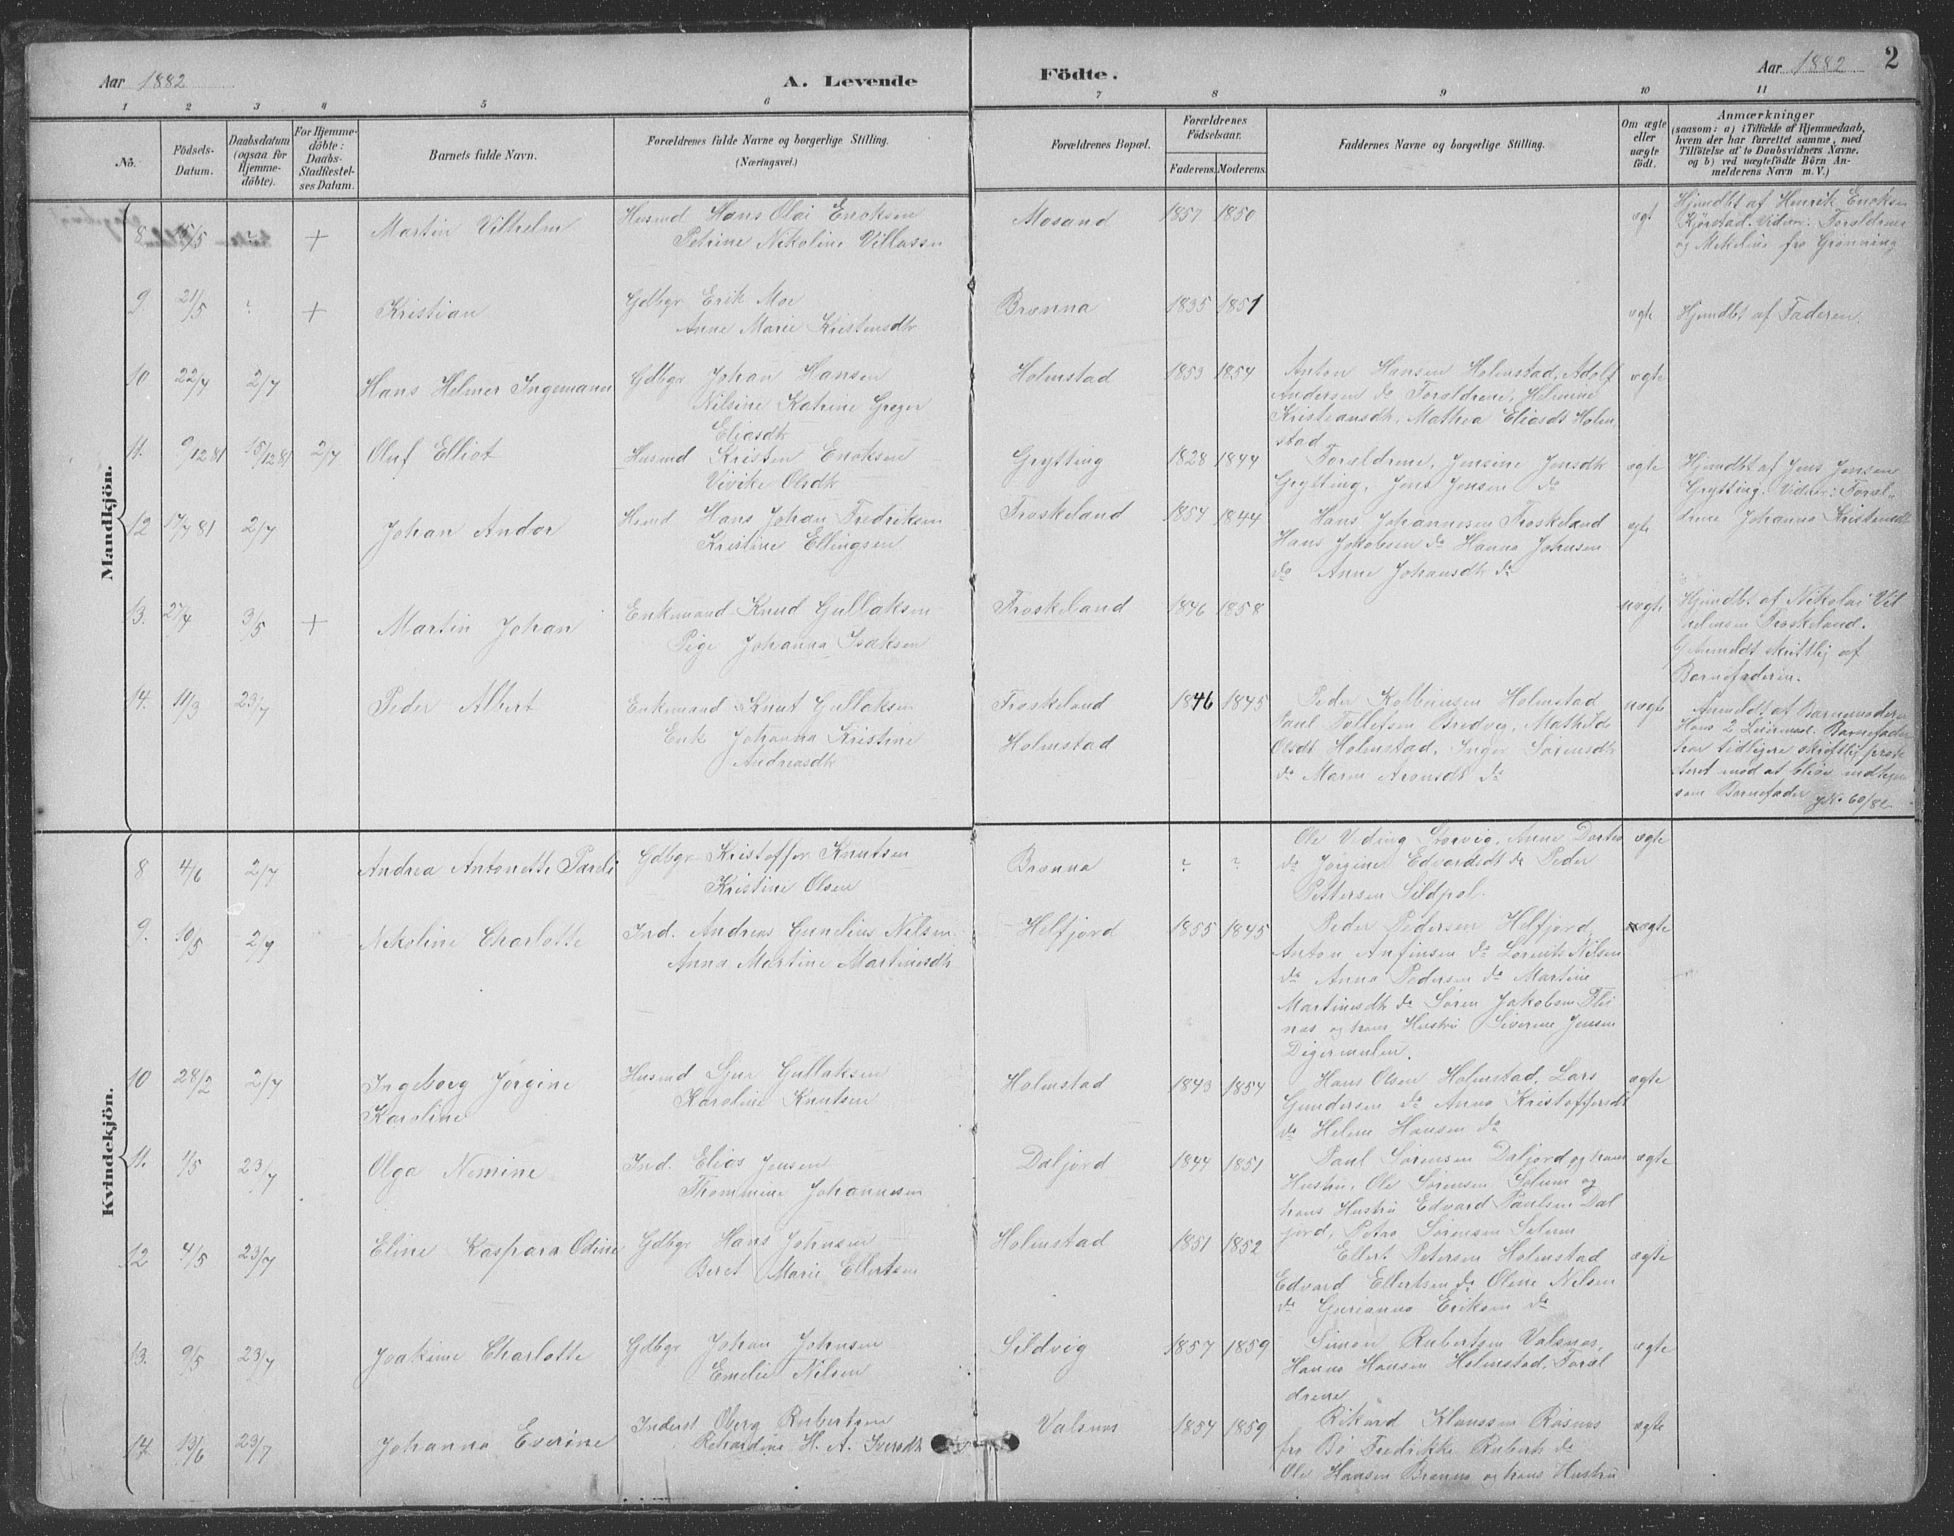 Aar 1882
A. Levende
Födte.
Aar 1882
2
1 2 3 4 5 6 7 8 9 10 11
No.
Födsels-
Datum.
Daabsdatum
(ogsaa for
Hjemme-
döbte).
For Hjemme-
döbte:
Daabs-
Stadfæstel-
ses Datum.
Barnets fulde Navn.
Forældrenes fulde Navne og borgerlige Stilling.
(Næringsvei.)
Forældrenes Bopæl.
Forældrenes
Födselsaar.
Faderens. Moderens.
Faddernes Navne og borgerlige Stilling.
Om ægte
eller
uægte
födt.
Anmærkninger
(saasom: a) i Tilfælde af Hjemmedaab,
hvem der har forrettet samme, med
Tilföielse af to Daabsvidners Navne,
og b) ved uægtefödte Börn An-
melderens Navn m. V.)
Mandkjön.
8 5/5 +
Martin Vilhelm
Husmd Hans Olai Enoksen
Petrine Nikoline Villassn
Mosand
1857 1850
ægt
Hjmdbt af Henrik Enoksen
Kjørstad. Vidner: Forældrene
og Mekeline fra Grønning
9. 21/5 ? +
Kristian
Gdbgr Erik Moe
Anne Marie Kristensdtr
Brønna
1835 1851
ægte
Hjmdbt af Faderen.
10 22/4 2/7
Hans Helmer Ingemann
Gdbgr Johan Hansen
Nilsine Katrine Greger
Eliasdtr
Holmstad
1853 1854
Anton Hansen Holmstad, Adolf
Andersen do Forældrene, Helmine
Kristiansdtr, Mathea Eliasdt Holm
stad
ægte
11. 9/12 81 15/12 81 2/7
Oluf Elliot
Husmd Kristen Enoksen
Vivike Olsdtr
Grytting
1828 1844
Forældrene, Jensine Jensdtr
Grytting, Jens Jensen do
ægte
Hjmdbt af Jens Jensen
Grytting. Vidner: Foræl-
drene Johanna Kristensdt
12 17/7 81 2/7
Johan Andor
Husmd Hans Johan Fredriksen
Kristine Ellingsen
Froskeland
1854 1844
Hans Johannesen Froskeland
Hans Jakobsen do Hanna Johnsen
do Anne Johansdtr do
ægte
13. 27/4 3/5 +
Martin Johan
Enkemand Knud Gullaksen
Pige Johanna Isaksen
Froskeland
1846 1858
uægte
Hjmdbt af Nikolai Vil
helmsen Froskeland.
Anmeldt skriftlig af
Barnefaderen.
14. 11/3 23/7
Peder Albert
Enkemand Knut Gullaksen
Enk Johanna Kristine
Andreasdtr
Froskeland
Holmstad
1846 1845
Peder Kolbensen Holmstad
Paul Tollefsen Bredvig, Mathilde
Olsdt Holmstad, Inger Sørensdtr
do Maren Aronsdt do
uægte
Anmeldt af Barnemoderen
Hans 2 Leiermaal. Barnefader
har tidligere skriftlig prote
steret mod at blive indtegn
som Barnefader JN. 60/82
Kvindekjön.
8 4/6 2/7
Andrea Antonette Pareli
Gdbgr Kristoffer Knutsen
Kristine Olsen
Brønna
? ?
Ole Veding Storvig, Anne Dortea
do Jørgine Edvardsdt do Peder
Pettersen Sildpol.
ægte
9. 10/5 2/7
Nikoline Charlotte
Ind. Andreas Cunelius Nilsen
Anna Martine Martinsdtr
Helfjord
1855 1845
Peder Pedersen Helfjord,
Anton Anfinsen do Lorents Nilsen
do Anna Pedersen do Martine
Martinsdtr do Søren Jakobsen Flei
nes og hans Hustru Siverine Jensen
Digermulen.
ægte
10 28/2 2/7
Ingeborg Jørgine
Karoline
Husmd Sjur Gullaksen
Karoline Knutsen
Holmstad
1843 1854
Hans Olsen Holmstad, Lars
Gundersen do Anna Kristoffersdt
do Helene Hansen do
ægte
11. 1/5 23/7
Olga Nemine
Ind. Elias Jensen
Thommine Johannesen
Daljord
1844 1851
Paul Sørensen Daljord og hans
Hustru, Ole Sørensen Selnæs og
hans Hustru Edvard Paulsen Dal
jord, Petra Sørensen Selnæs
ægte
12 4/5 23/7
Eline Kaspara Odine
Gdbgr Hans Johnsen
Beret Marie Ellertsen
Holmstad
1851 1852
Ellert Petersen Holmstad
Edvard Ellertsen do Oline Nilsen
do Gurianna Eriksen do
ægte
13. 9/5 23/7
Joakime Charlotte
Gdbgr Johan Johnsen
Emelie Nilsen
Sildvig
1857 1859
Simon Rubertsen Valsnes,
Hanna Hansen Holmstad, Foræl
drene
ægte
14. 13/6 23/7
Johanna Everine
Inderst Oberg Rubertsen
Rikardine H. A. Iversdtr
Valsnes
1854 1859
Rikard Klaussen Røsnes
fra Bø Fredrikke Ruberts do
Ole Hansen Brønna og hans Hustru
ægte